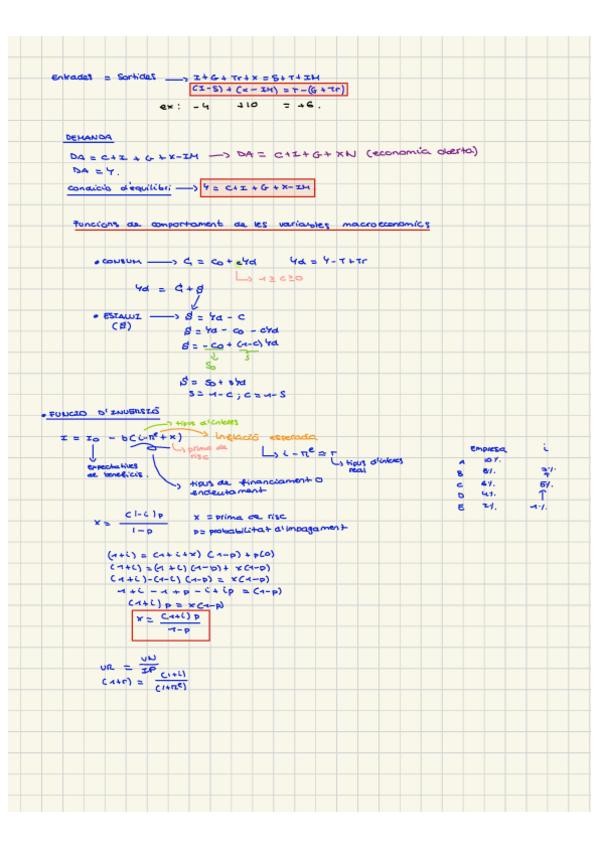 Entrades = Sortides → I+G+Tr+X = S+T+IM
(I-S) + (X-IM) = T-(G+Tr)
ex: -4 +10 = +6.
DEMANDA
DA = C+I+G+X-IM → DA = C+I+G+XN (economia oberta)
DA = Y.
Condició d'equilibri → Y = C+I+G+X-IM
Funcions de comportament de les variables macroeconomics
• CONSUM → C = C0 + cYd Yd = Y-T+Tr
→ 1 ≥ c ≥ 0
Yd = C + S
• ESTALVI → S = Yd - C
(S) S = Yd - C0 - cYd
S = -C0 + (1-c) Yd
S0 s
S = S0 + sYd
s = 1-c ; c = 1-s
• FUNCIÓ D'INVERSIÓ
→ tipus d'interes
I = I0 - b(i-πe+x) → Inflació esperada
→ prima de risc
→ i-πe = r
→ tipus d'interes real
expectatives de beneficis.
→ tipus de financiament o endeutament
Empresa i
A 10%.
B 8%.
C 6%. 5%.
D 4%. ↑
E 2%. 1%.
x = (1-i)p / 1-p x = prima de risc
p = probabilitat d'impagament
(1+i) = (1+i+x) (1-p) + p(0)
(1+i) = (1+i) (1-p) + x(1-p)
(1+i) - (1-i) (1-p) = x(1-p)
1+i-1+p-i+ip = (1-p)
(1+i)p = x(1-p)
x = (1+i)p / 1-p
VR = VN / IP
(1+r) = (1+i) / (1+πe)